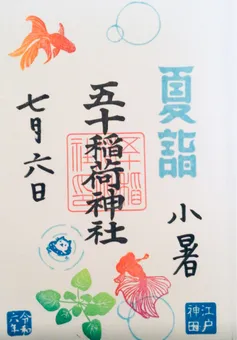 夏詣
小暑
江戸
神田
五十稲荷神社
七月六日
令和
六年